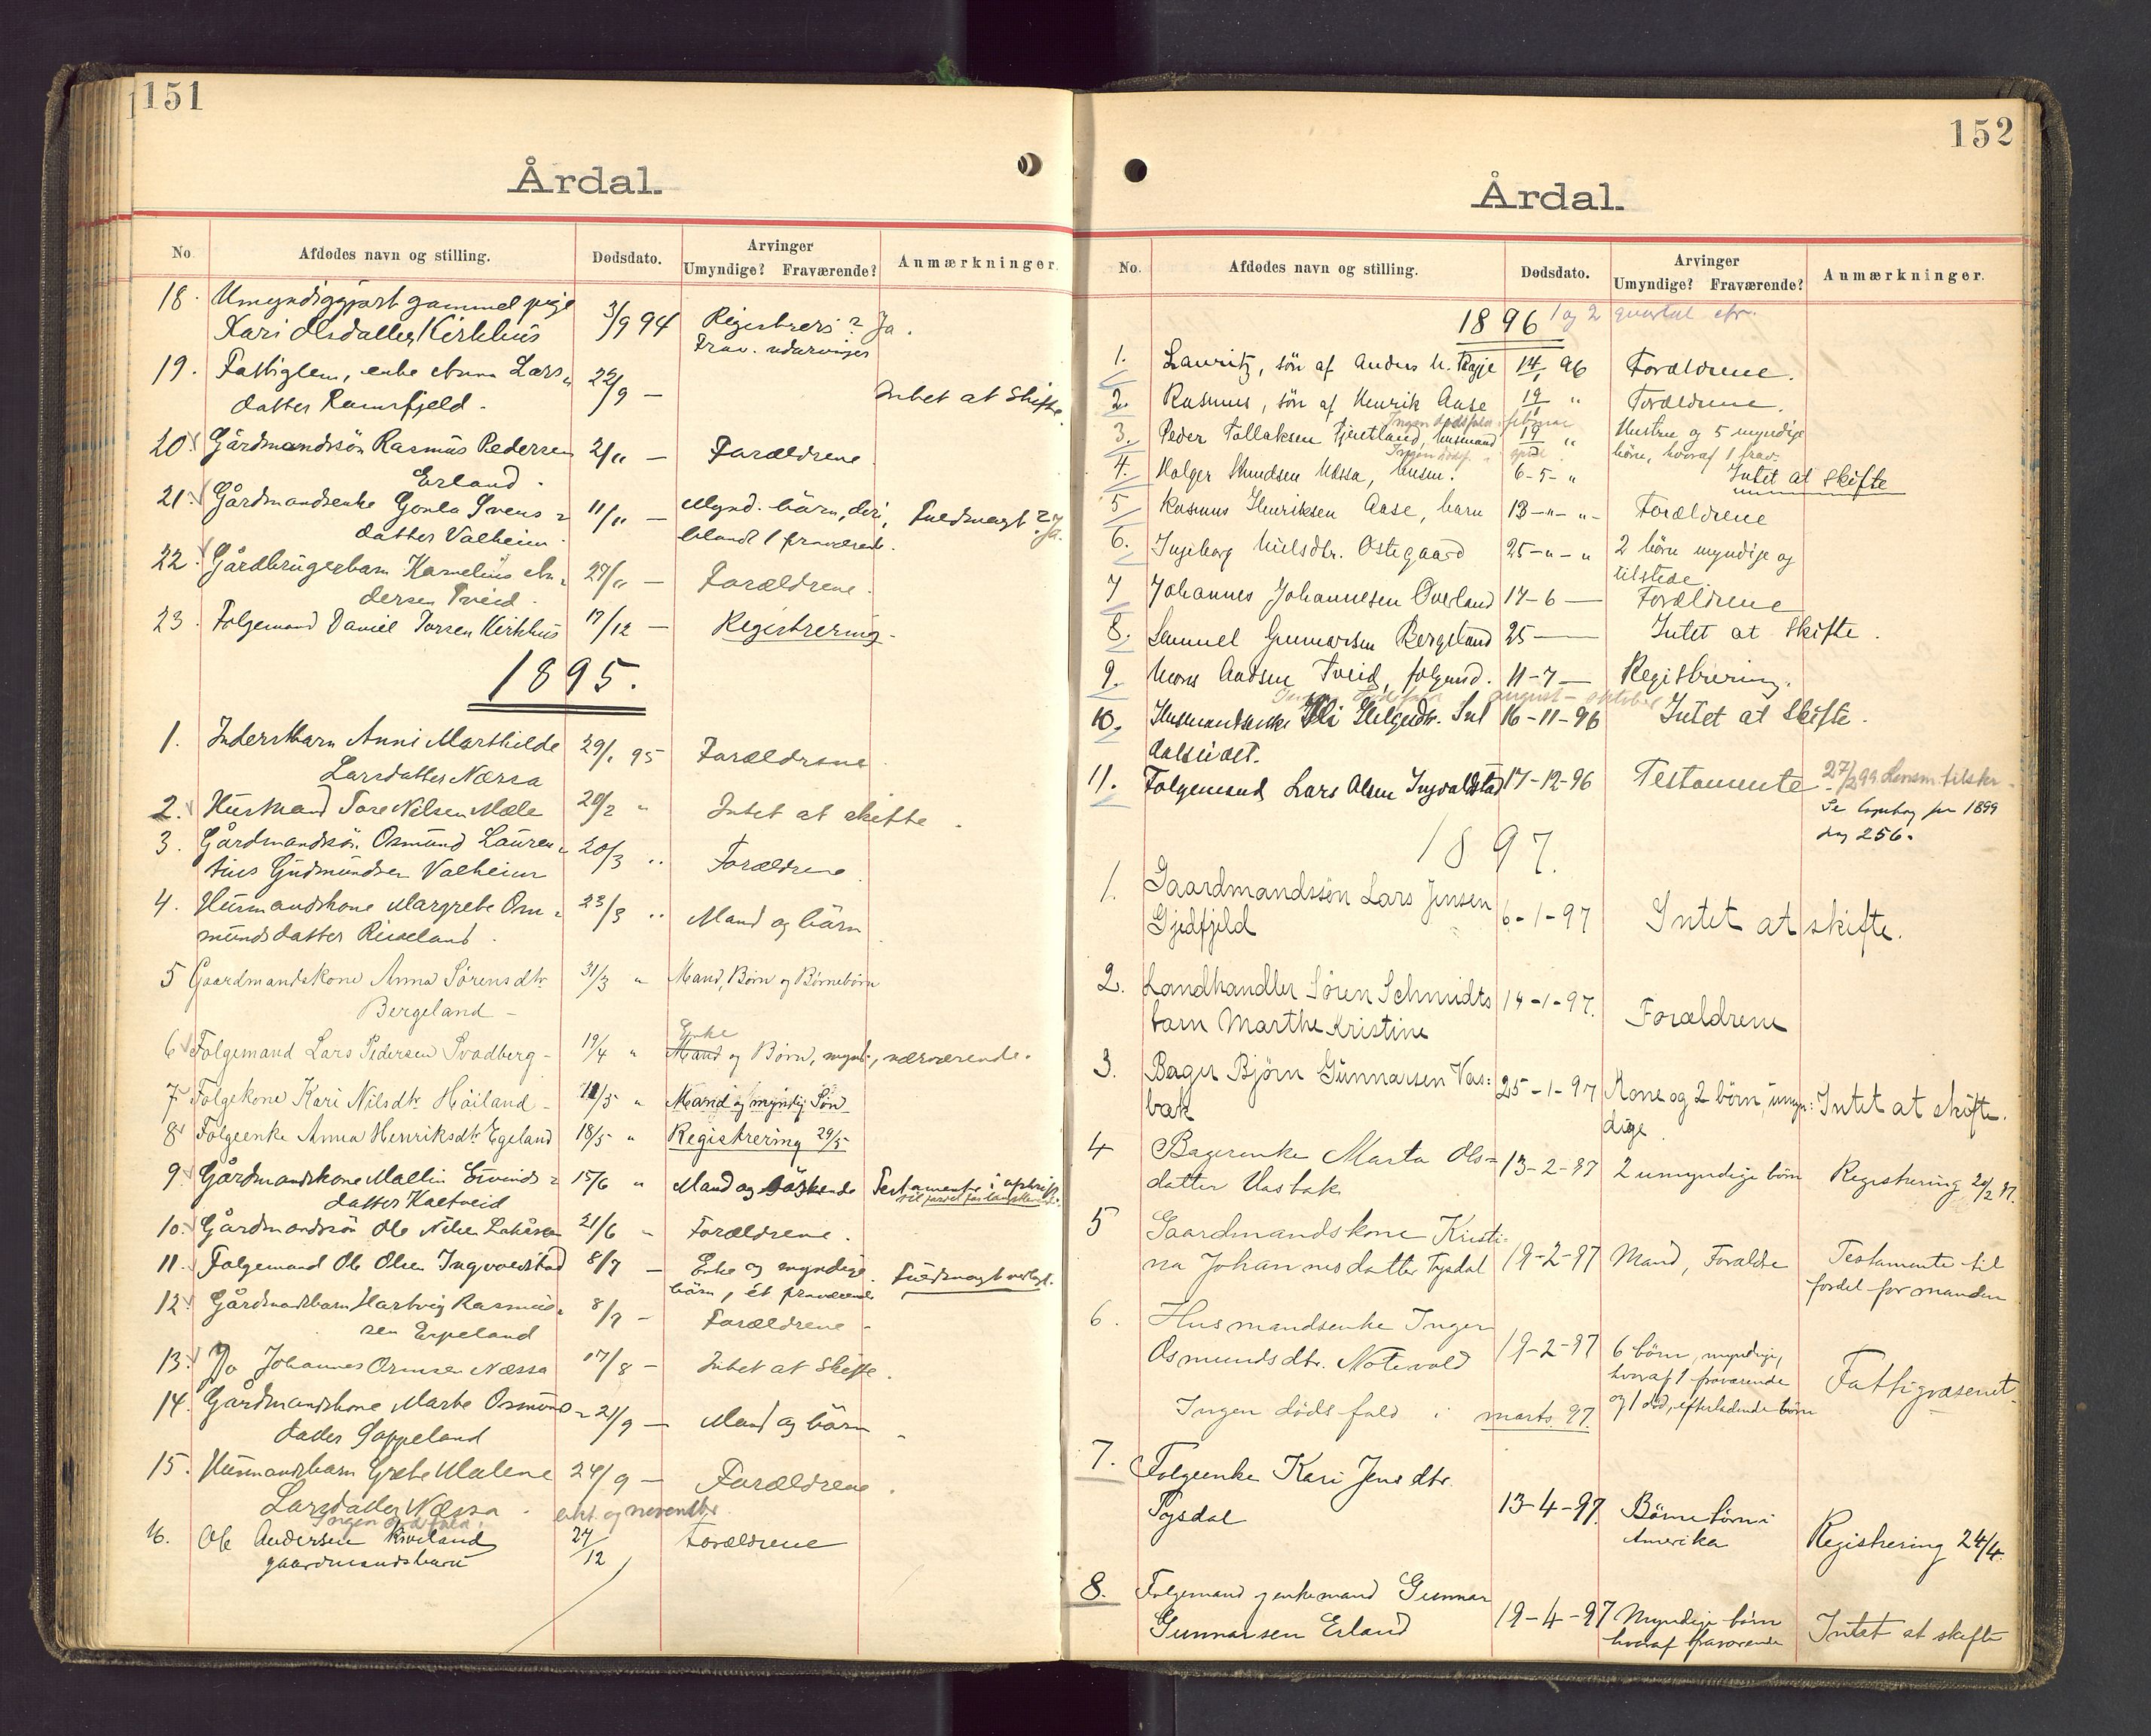 151
Årdal.
No. Afdødes navn og stilling. Dødsdato. Arvinger Umyndige? Fraværende? Anmærkninger.
18. Umyndiggjort gammel pige 3/9 94 Registrers? Ja.
Kari Olsdatter Kirkhus Frav. udarvinger
19. Fattiglem, enke Anna Lars= 22/9 — Intet at Skifte
datter Ramsfjeld.
20. Gårdmandssön Rasmus Pedersen 2/11 — Forældrene
Erland.
21. Gårdmandsenke Gonla Svens= 11/11 — Mynd. börn, deri, Fuldmagt? Ja.
datter Valheim. blandt 1 fraværende.
22. Gårdbrugerbarn Kornelius An= 27/11 — Forældrene.
dersen Tveid.
23. Folgemand Daniel Torsen Kirkhus 17/12 — Registrering.
1895.
1. Inderstbarn Anni Marthilde 29/1 95 Forældrene
Larsdatter Næssa
2. Husmand Tore Nilsen Mæle 20/2 " Intet at skifte.
3. Gårdmandssön. Osmund Lauren= 20/3 " Forældrene
tius Gudmundsen Valheim
4. Husmandskone Margrete Om= 23/3 " Mand og börn
mundsdatter Riveland.
5 Gaardmandskone Anna Sörensdtr. 31/3 " Mand, Börn og Börnebörn
Bergeland —
Enke
6 Folgemand Lars Pedersen Svadberg — 19/4 " Mand og Börn, mynd., nærværende.
7 Folgekone Kari Nilsdtr. Höiland — 11/5 " Mand og myndig Sön
8 Folgeenke Anna Henriksdtr. Egeland 18/5 " Registrering 29/5
9 Gårdmandskone Mallin Eivinds= 15/6 " Mand og Söskende Testamente i afskrift
datter Kaltveid
10. Gårdmandssön Ole Nilsen 21/6 " Forældrene.
11. Folgemand Ole Olsen Ingvaldstad 8/7 — Enke og myndige Fuldmagt vedlagt.
börn, ét fraværende
12. Gårdmandsbarn Hartvig Rasmus= 8/7 — Forældrene —
sen Erpeland
13. Do Johannes Ormsen Næssa 17/8 — Intet at Skifte.
14. Gårdmandskone Marte Osmund= 21/9 — Mand og börn
datter Soppeland
15. Husmandsbarn Grete Malene 24/9 — Forældrene.
Larsdatter Næssa.
Ingen dödsfald i okt. og november
16. Ole Andersen Riveland 27/12 Forældrene
gaardmandsbarn
152
Årdal.
No. Afdødes navn og stilling. Dødsdato. Arvinger Umyndige? Fraværende? Anmærkninger.
1896 1 og 2 quartal
1. Lauritz, sön af Anders 14/1 96 Forældrene.
2. Rasmus, sön af Henrik Aase 19/1 " Forældrene.
Ingen dödsfald i februar
3. Peder Tollaksen Fjeldland, husmand 19 " Hustru og 5 myndige
börn, hvoraf 1 frav.
Ingen dödsf. i april
4. Holger Knudsen Næssa, husm. 6-5- " Intet at skifte
5 Rasmus Henriksen Aase, barn 13-"-"- Forældrene
6. Ingeborg Nielsdtr. Östegaard 25-"-" 2 börn myndige og
tilstede
7 Johannes Johannesen Överland 17-6 — Forældrene
8. Samuel Gunnarsen Bergeland 25 — Intet at Skifte.
9. Mons Aadsen Tveid, folgemd. 11-7 — Registrering.
Ingen dödsfald august - oktober
10. Husmandsenke Helgesdtr. Sel 16-11-96 Intet at Skifte.
dalseidet.
11. Folgemand Lars Olsen Ingvaldstad 17-12-96 Testamente 27/2 99 Lensm. tilskr.
Se kopibog for 1899
256.
1897.
1. Gaardmandssön Lars Jensen 6-1-97 Intet at skifte.
Gjedfjeld
2. Landhandler Sören Schmidts 14-1-97. Forældrene
barn Marthe Kristine
3. Bager Björn Gunnarsen Vas: 25-1-97 Kone og 2 börn, umyn: Intet at skifte.
bæk dige
4 Bagerenke Marta Ols= 13-2-97 2 umyndige börn Registrering 20/2 97.
datter Vasbæk
5 Gaardmandskone Kristi- 19-2-97 Mand, Forældre Testamente til
na Johannesdatter Tysdal fordel for manden
6. Husmandsenke Inger 19-2-97 6 börn, myndige, Fattigvæsenet
Osmundsdtr. Notevold hvoraf 1 fraværende
og 1 död, efterladende börn
Ingen döds fald i marts 97.
7. Folgeenke Kari Jensdtr. 13-4-97. Börnebörn i Registrering 24/4.
Tysdal Amerika
8. Folgemand og enkemand Gunnar 19-4-97 Myndige börn Intet at skifte
Gunnarsen Erland hvoraf fraværende